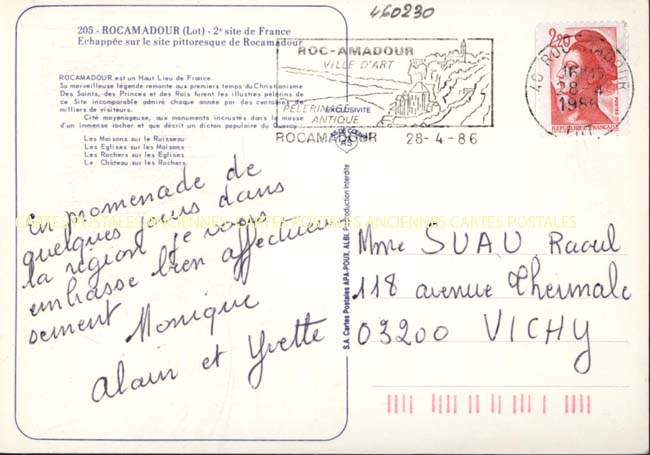 460230
205 - ROCAMADOUR (Lot) - 2e site de France
Echappée sur le site pittoresque de Rocamadour
ROCAMADOUR est un Haut Lieu de France.
Sa merveilleuse légende remonte aux premiers temps du Christianisme
Des Saints, des Princes et des Rois furent les illustres pèlerins de
ce Site incomparable admiré chaque année par des centaines de
milliers de visiteurs.
Cité moyenageuse, aux monuments incrustés dans la masse
d'un immense rocher et que décrit un dicton populaire du Quercy
Les Maisons sur le Ruisseau
Les Eglises sur les Maisons
Les Rochers sur les Eglises
Le Château sur les Rochers
ROC-AMADOUR
VILLE D'ART
PÈLERINAGE
ANTIQUE
EXCLUSIVITE
ROCAMADOUR 28-4-86
46 ROCAMADOUR
28-4
1986
2,20
REPUBLIQUE FRANÇAISE
En promenade de
quelques jours dans
la région je vous
embrasse bien affectueu
sement Monique
Alain et Yvette
S.A. Cartes Postales APA-POUX, ALBI. Reproduction Interdite
Mme SUAU Raoul
118 avenue Thermale
03200 VICHY
CARTES POSTALES ANCIENNES CARTES POSTALES ANCIENNES CARTES POSTALES